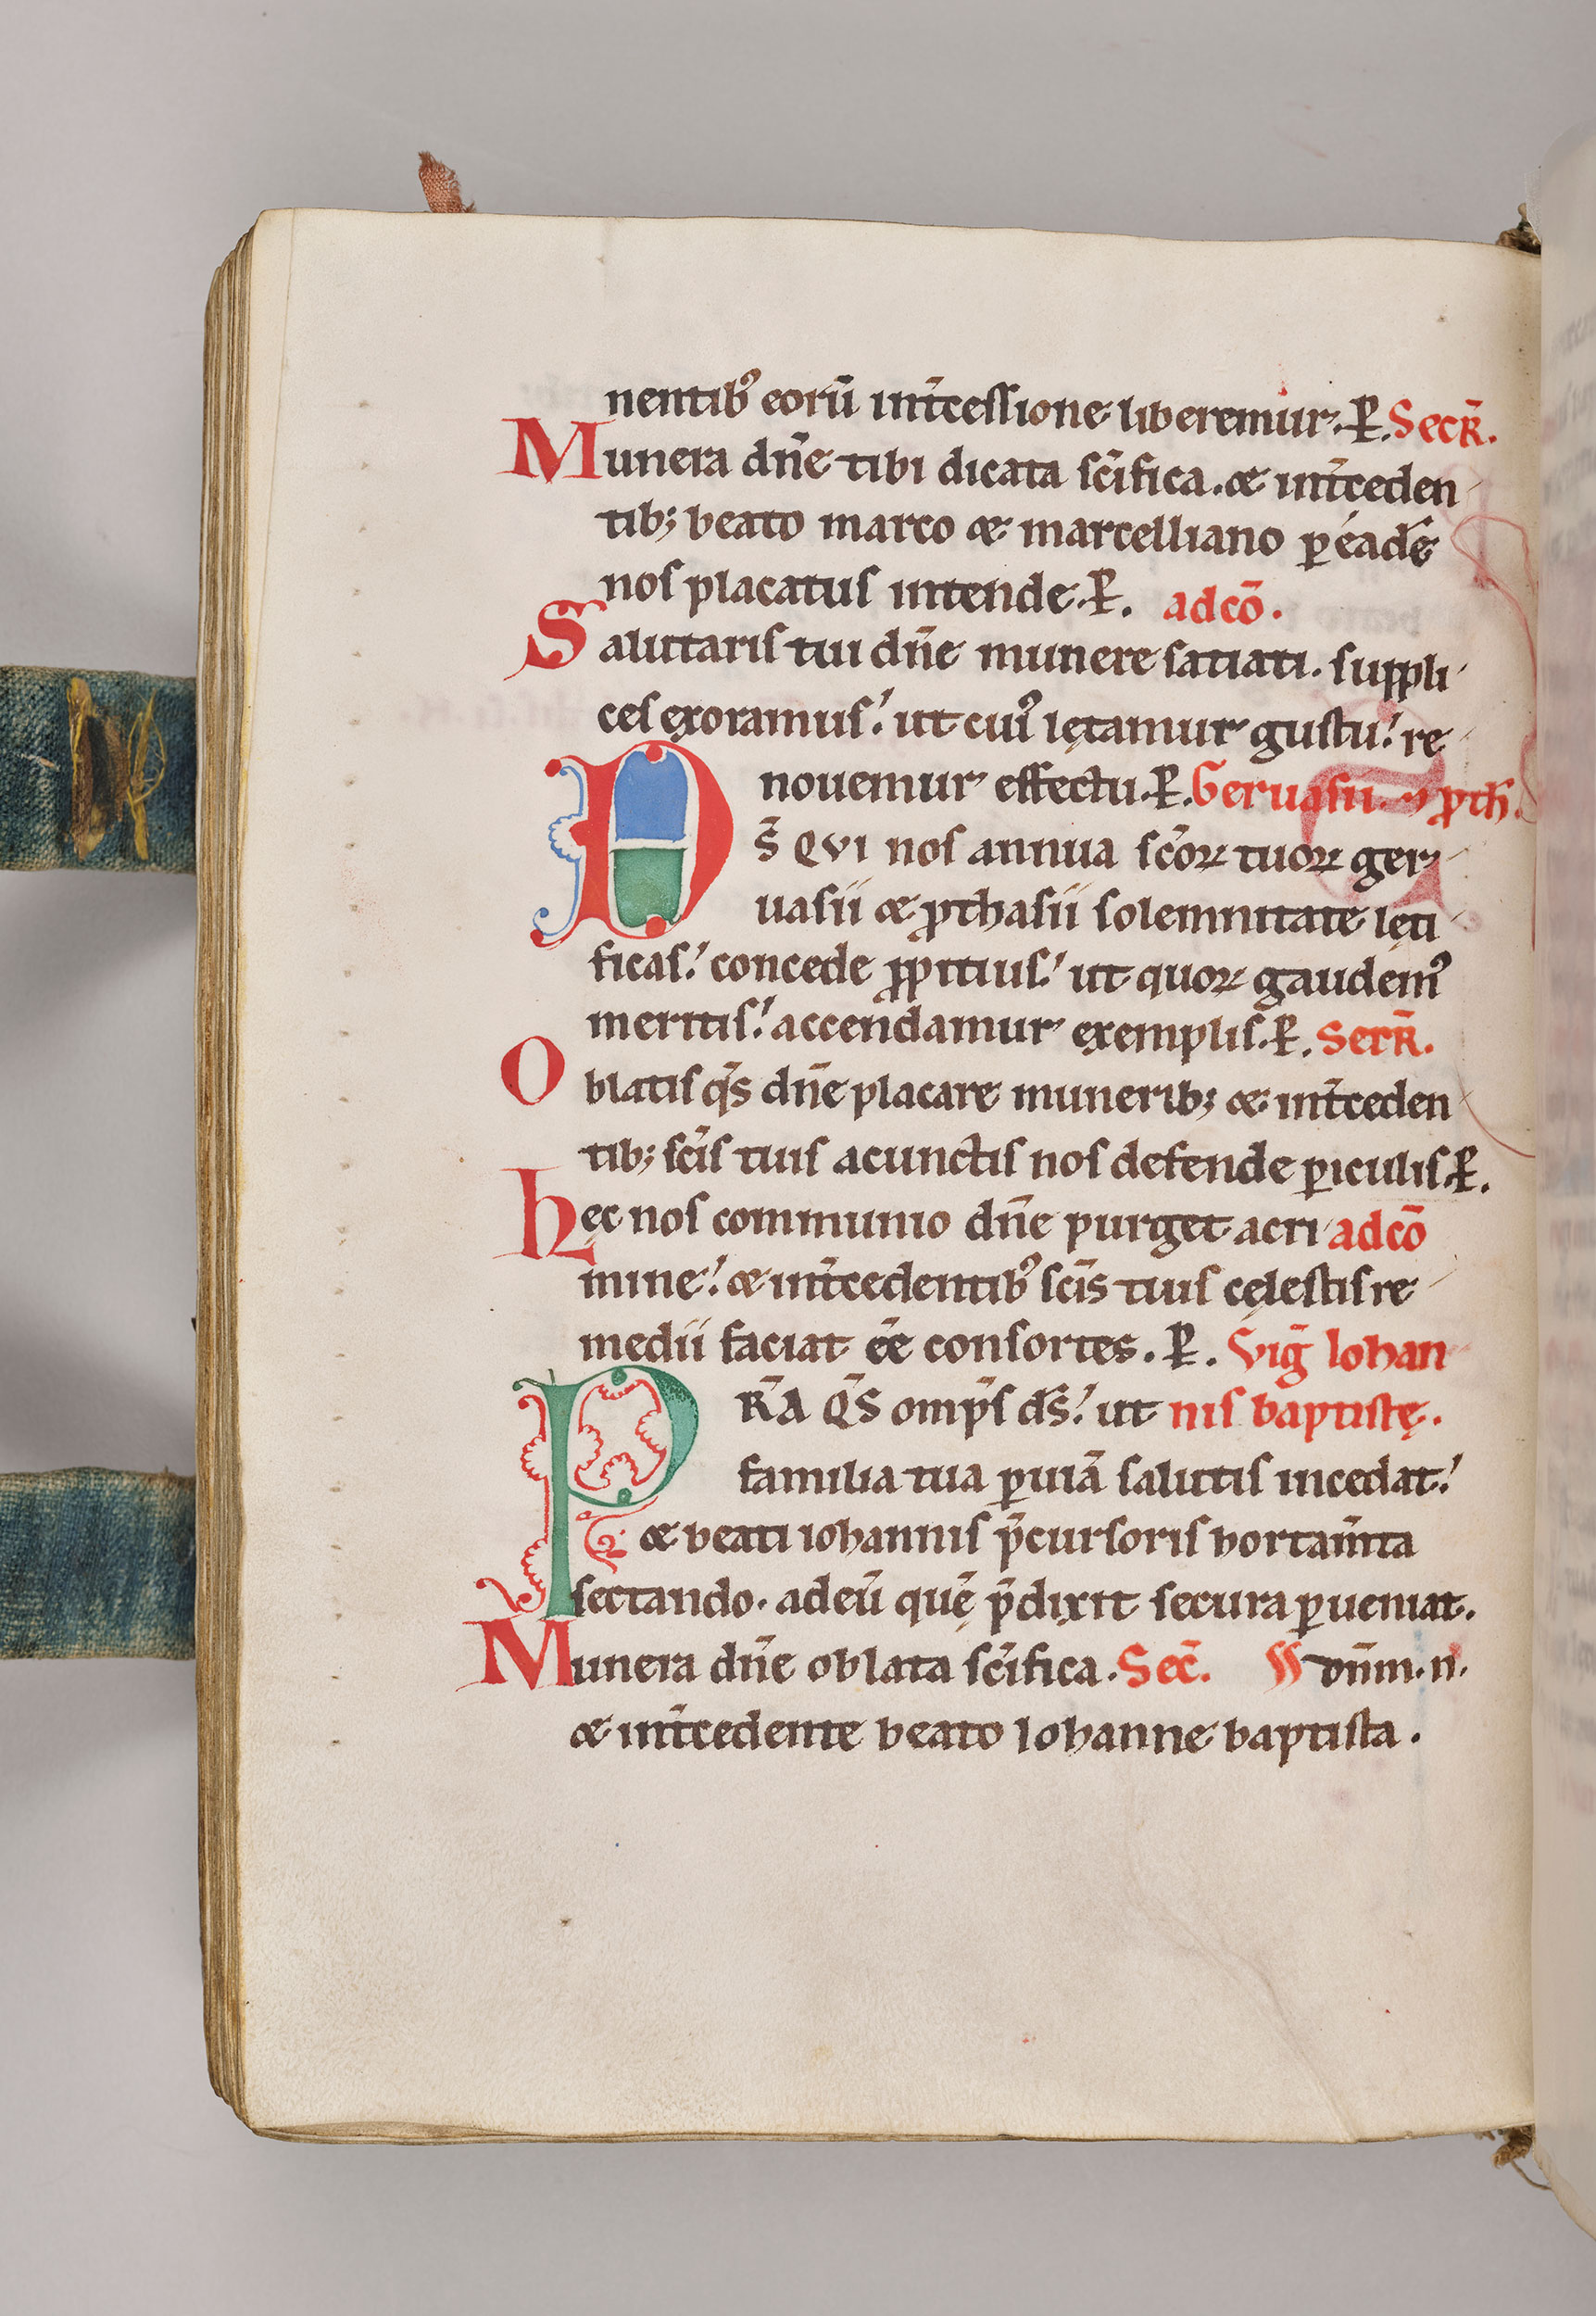 nentibꝰ eorū int̄cessione liberemur. P̲. Secr̄.
Munera dn̄e tibi dicata sc̄ifica. & int̄ceden
tib; beato marco & marcelliano ꝑ eadē
nos placatus intende. P̲. ad cō.
Salutaris tui dn̄e munere satiati. suppli
ces exoramus! ut cuiꝰ lętamur gustu! re
nouemur effectu. P̲. Geruasii. ⁊ ꝓth̄.
DS̄ QVI nos annua sc̄oꝝ tuoꝝ ger
uasii & ꝓthasii solemnitate lęti
ficas! concede ꝓpitius! ut quoꝝ gaudemꝰ
meritis! accendamur exemplis. P̲. Secr̄.
Oblatis qs̄ dn̄e placare munerib; & int̄ceden
tib; sc̄is tuis a cunctis nos defende ꝑiculis. P̲.
Hęc nos communio dn̄e purget a cri ad cō
mine! & int̄cedentibꝰ sc̄is tuis cęlestis re
medii faciat ēē consortes. P̲. Viḡ Iohan
PR̄A QS̄ omp̄s ds̄! ut nis baptistę.
familia tua ꝑ uiā salutis incedat!
& beati iohannis p̄cursoris hortam̄ta
sectando. ad eū quē p̄dixit secura ꝑueniat.
Munera dn̄e oblata sc̄ifica. Sec̄. dn̄m. n̄.
& int̄cedente beato Iohanne baptista.